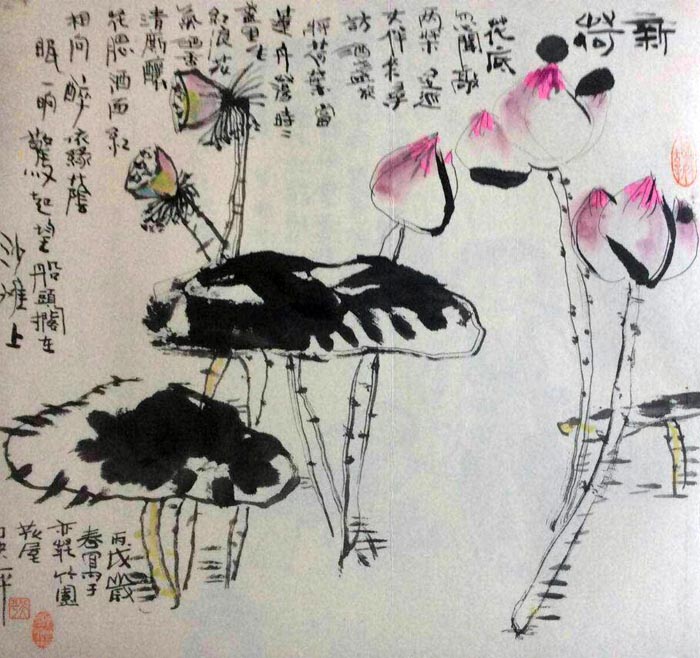 新荷
花底
忽聞敲
兩槳逡巡
女伴來尋
訪酒盞旋
將荷葉當
蓮舟蕩時時
盞里生
紅浪花
氣酒香
清廝釀
花腮酒面紅
相向醉依緣蔭
眠一晌驚起望船頭擱在
沙灘上
丙戌歲
春宵于
竹園
屋
平